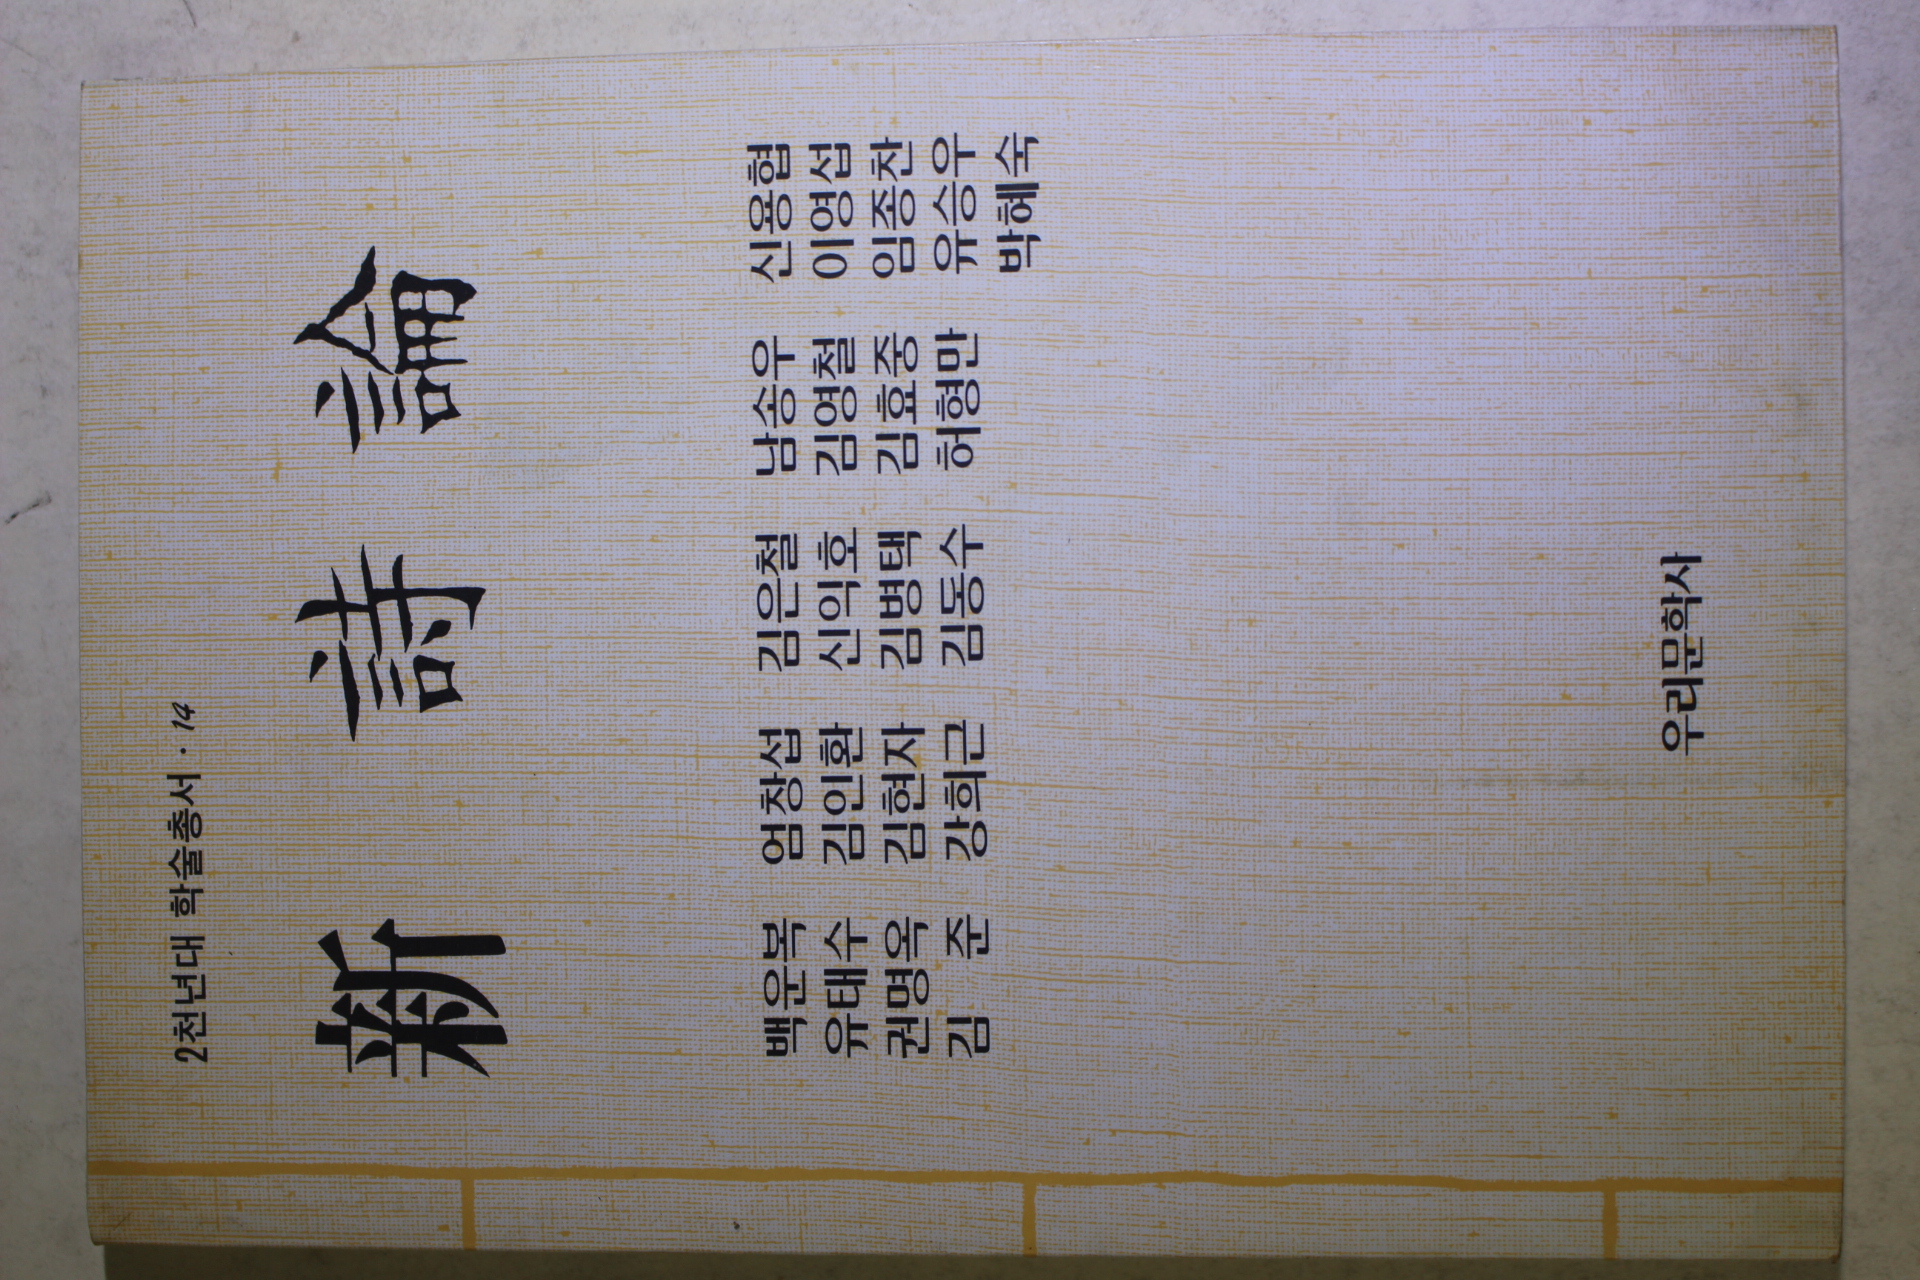 2천년대 학술총서 · 14
新詩論
백운복 엄창섭 김은철 남송우 신용협
유태수 김인환 신익호 김영철 이영섭
권명옥 김현자 김병택 김효중 임종찬
김 준 강희근 김동수 허형만 유승우
박혜숙
우리문학사